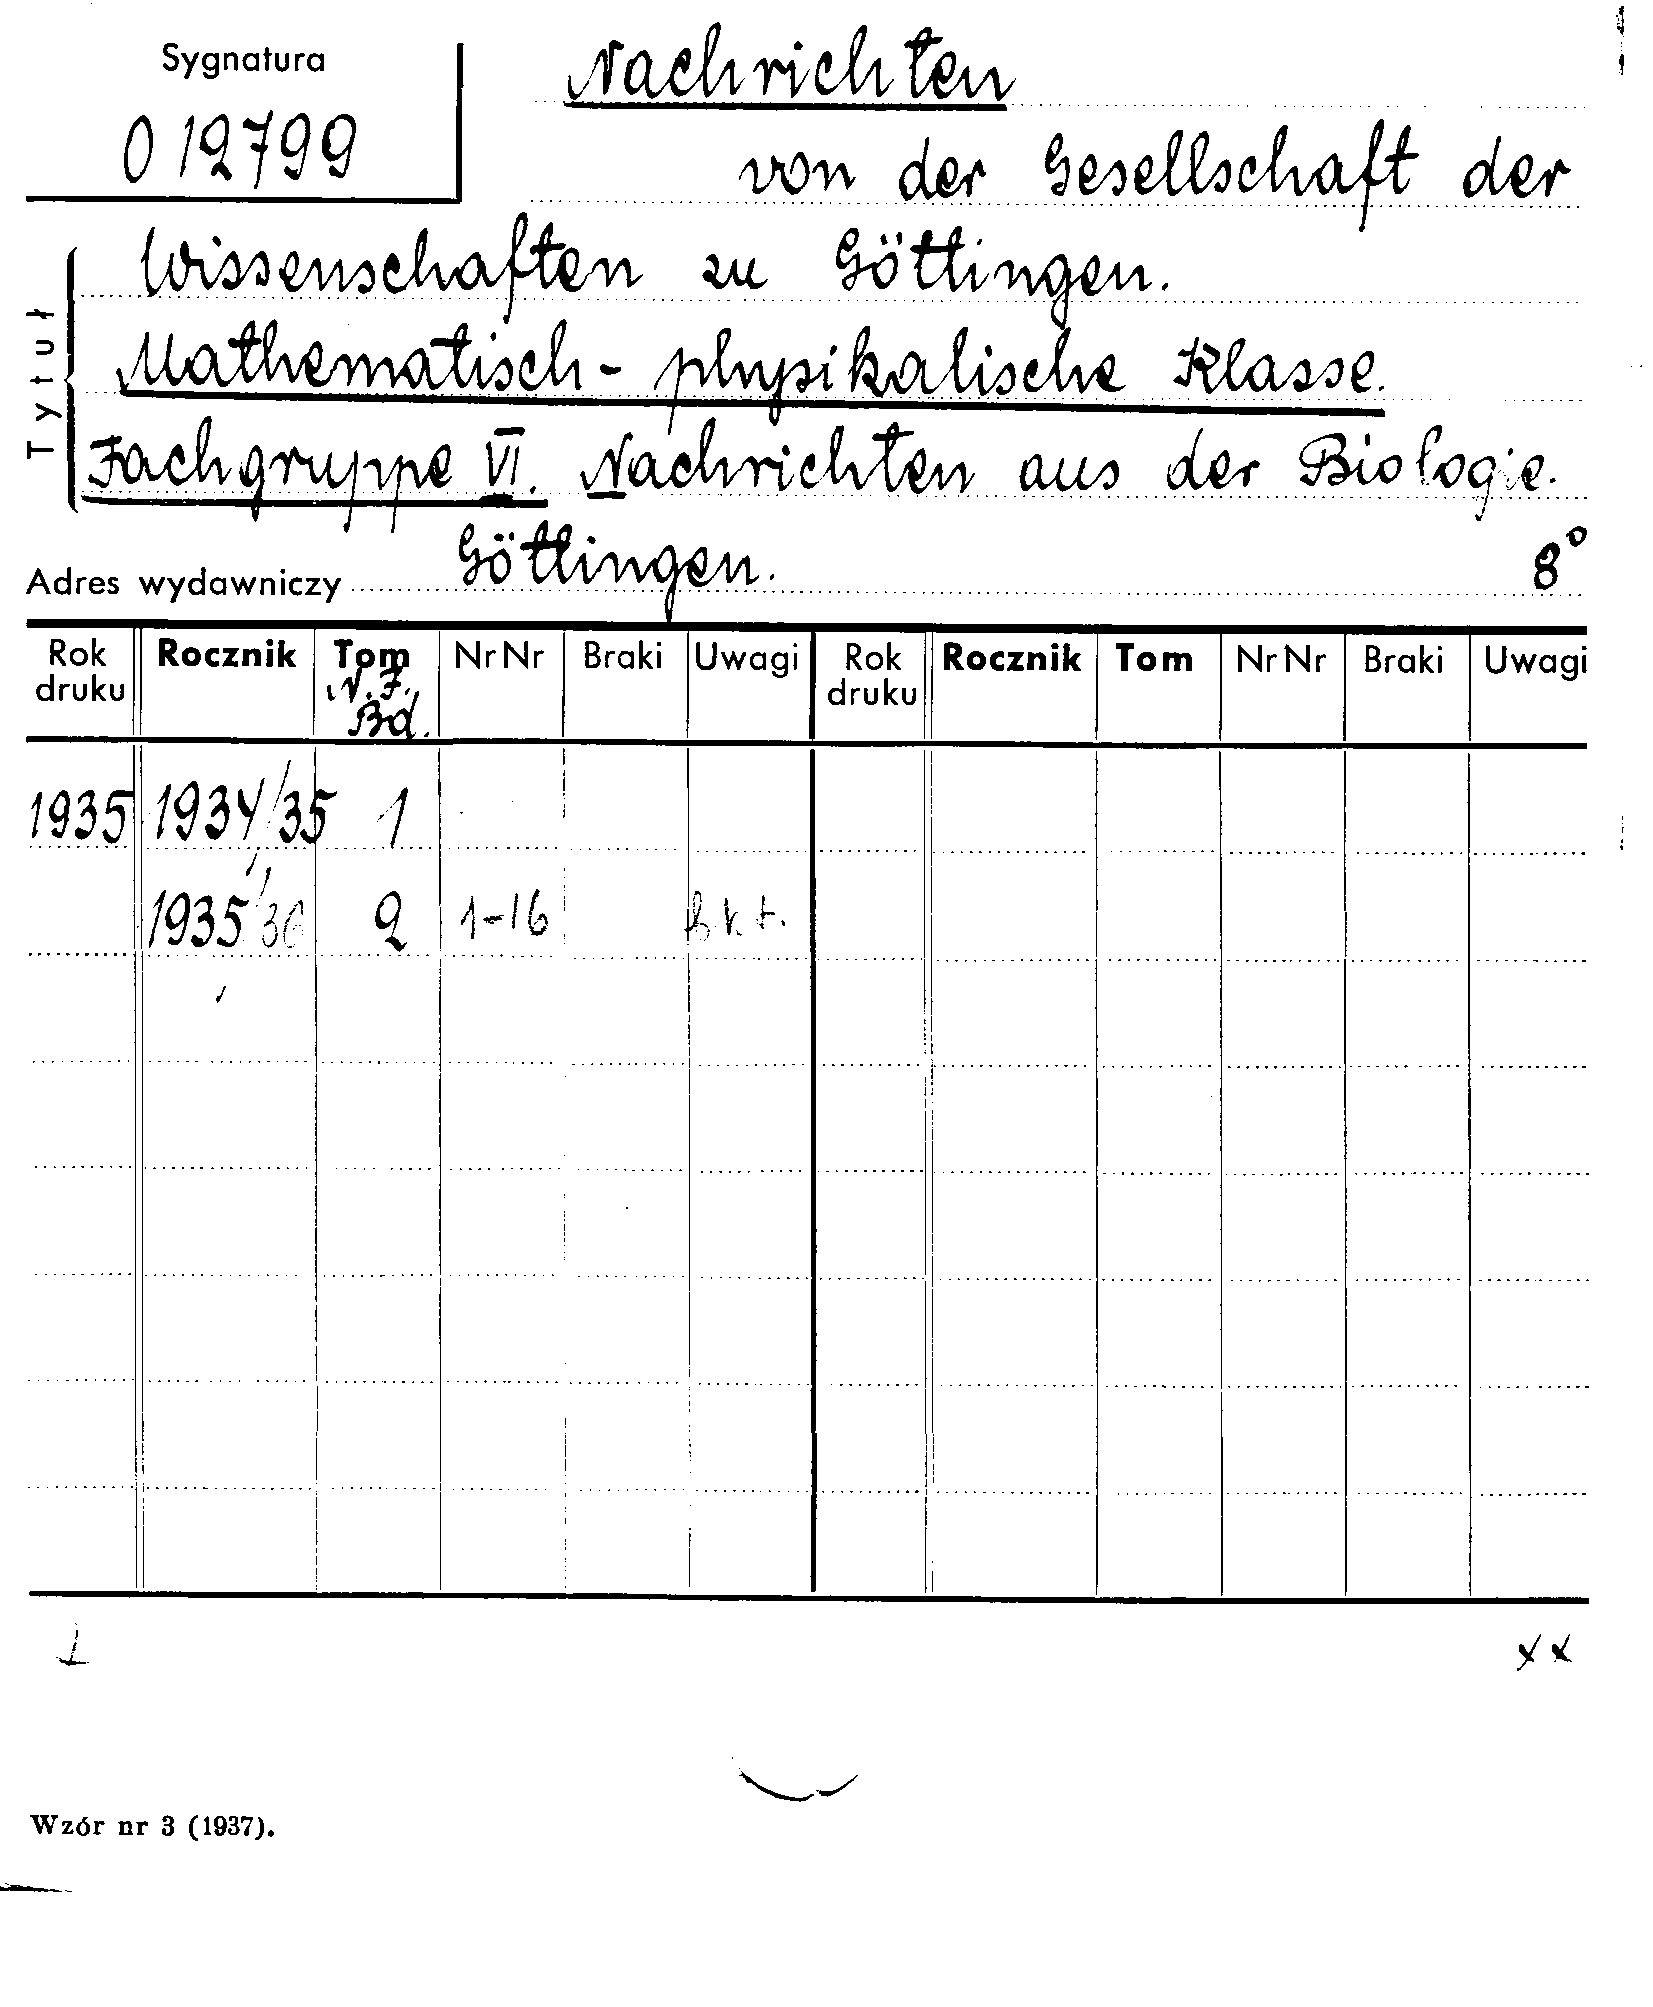 Sygnatura
O 12799
Nachrichten
von der Gesellschaft der
Wissenschaften zu Göttingen.
Mathematisch - physikalische Klasse.
Fachgruppe VI. Nachrichten aus der Biologie.
Tytuł
Göttingen. 8°
Adres wydawniczy
Rok druku Rocznik Tom NrNr Braki Uwagi Rok druku Rocznik Tom NrNr Braki Uwagi
N. F. Bd.
1935 1934/35 1
1935/36 2 1-16
xx
Wzór nr 3 (1937).